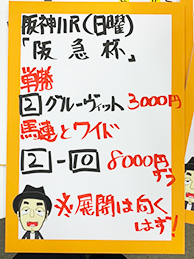 阪神11R(日曜)
「阪急杯」
単勝
2 グルーヴィット 3000円
馬連とワイド
2-10 8000円ずつ
※展開は向くはず!